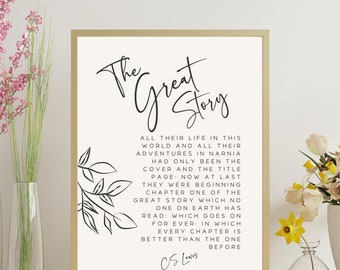 The
Great
Story
ALL THEIR LIFE IN THIS
WORLD AND ALL THEIR
ADVENTURES IN NARNIA
HAD ONLY BEEN THE
COVER AND THE TITLE
PAGE: NOW AT LAST
THEY WERE BEGINNING
CHAPTER ONE OF THE
GREAT STORY WHICH NO
ONE ON EARTH HAS
READ: WHICH GOES ON
FOR EVER: IN WHICH
EVERY CHAPTER IS
BETTER THAN THE ONE
BEFORE
CS Lewis